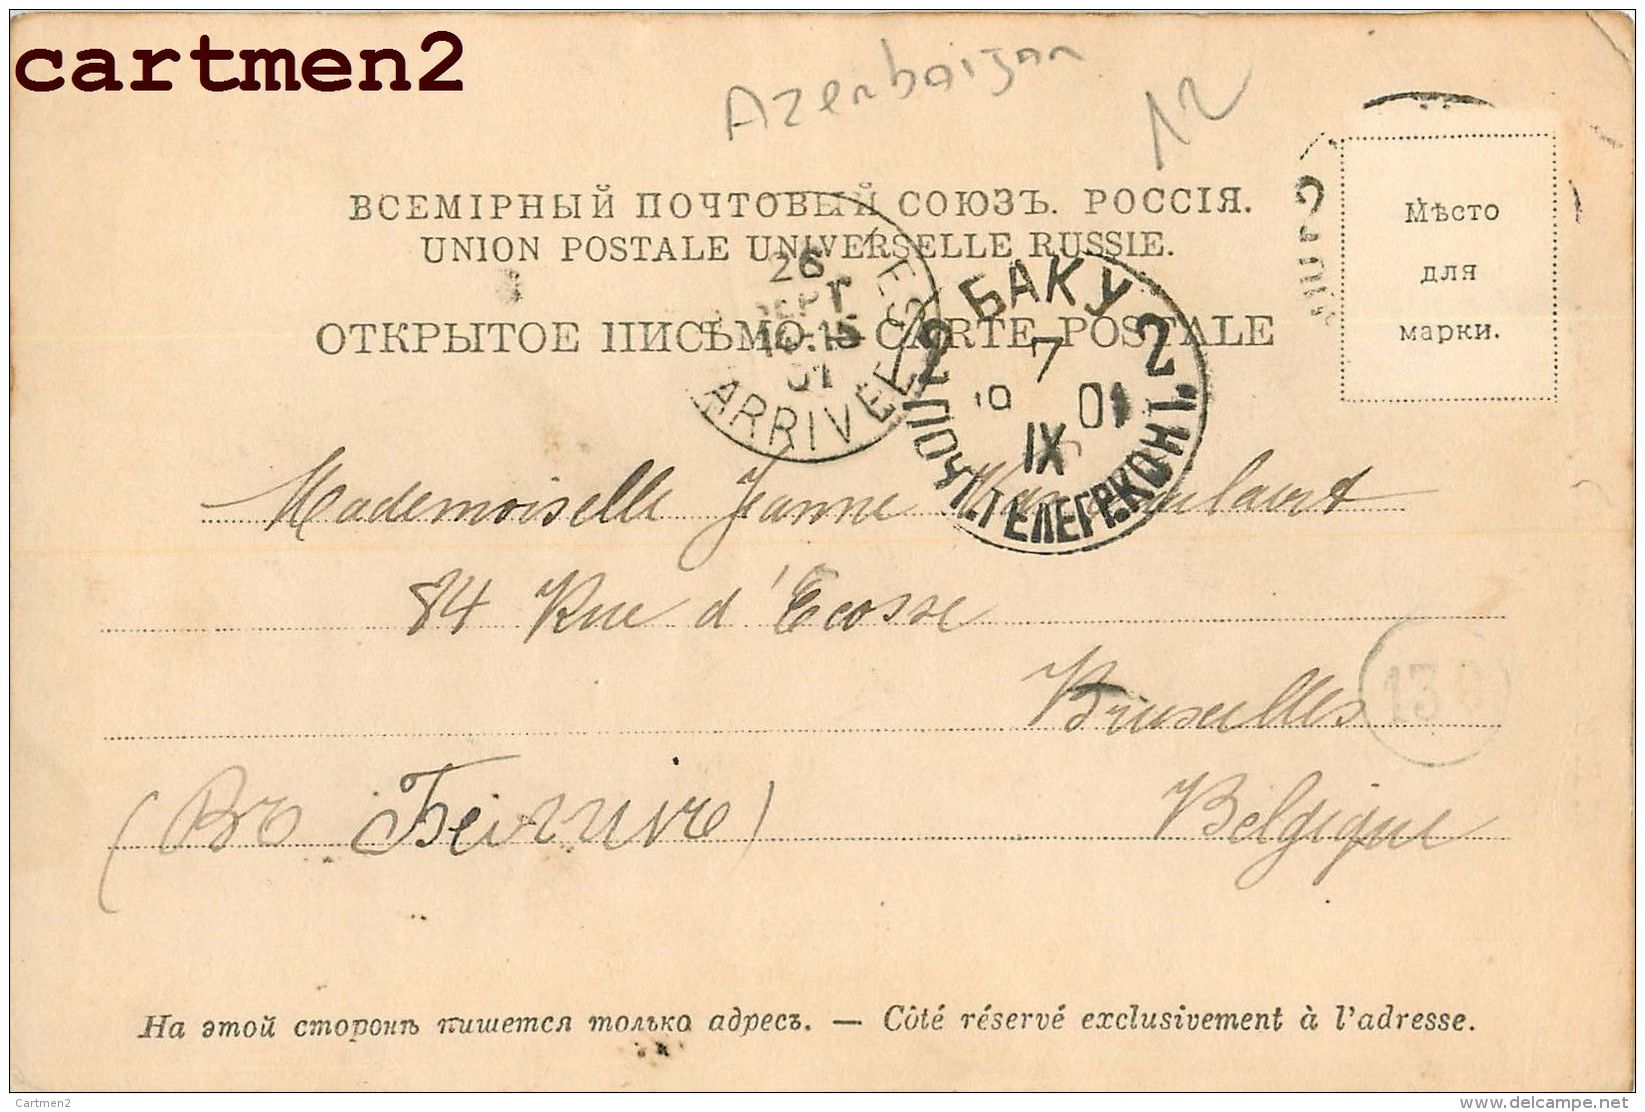 cartmen2
Azerbaijan
12
ВСЕМІРНЫЙ ПОЧТОВЫЙ СОЮЗЪ. РОССІЯ.
UNION POSTALE UNIVERSELLE RUSSIE.
ОТКРЫТОЕ ПИСЬМО. — CARTE POSTALE
Мѣсто
для
марки.
26
SEPT
01
ARRIVÉE
БАКУ
2 7 2
10 01
IX
ПОЧ. ТЕЛЕГР. КОНТ.
Mademoiselle Jeanne
84 Rue d'Ecosse
Bruxelles
130
(Въ Бельгію)
Belgique
На этой сторонѣ пишется только адресъ. — Côté réservé exclusivement à l'adresse.
Cartmen2
delcampe.net